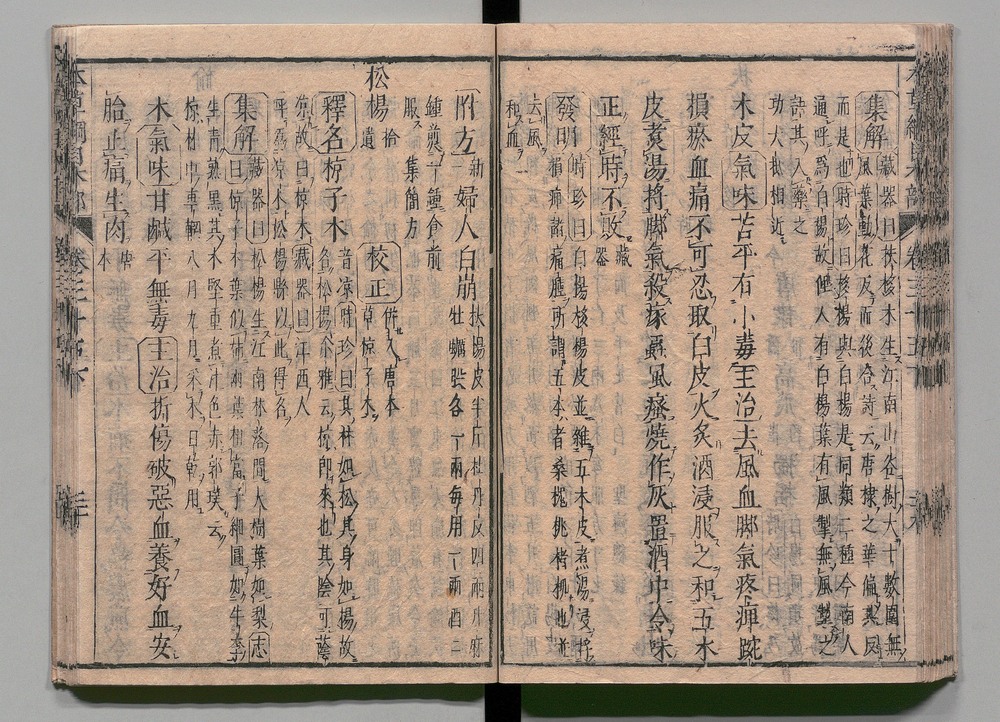 集解藏器曰扶栘木生江南山谷樹大十數圍無
風葉動花反而後合詩云唐棣之華偏其反
而是也時珍曰栘楊與白楊是同類二種今南人
通呼爲白楊故俚人有白楊葉有風掣無風掣之
語其入藥之
功大抵相近
木皮氣味苦平有小毒主治去風血脚氣疼痺踠
損瘀血痛不可忍取白皮火炙酒浸服之和五木
皮煮湯捋脚氣殺瘃蟲風瘙燒作灰置酒中令味
正經時不敗藏器
發明時珍曰白楊栘楊皮並雜五木皮煮湯浸捋
損痺諸痛腫所謂五木者桑槐桃楮柳也並
去風
和血
附方新一婦人白崩扶楊皮半斤牡丹皮四兩升麻
牡蠣煅各一兩每用一兩酒二
鍾煎一鍾食前
服集簡方
松楊拾遺校正併入唐本草椋子木
釋名椋子木音凉時珍曰其材如松其身如楊故
名松楊爾雅云椋即來也其陰可蔭
凉故曰椋木藏器曰江西人
呼凉木松楊縣以此得名
集解藏器曰松楊生江南林落間大樹葉如梨志
曰椋子木葉似柿兩葉相當子細圓如牛李
生青熟黑其木堅重煮汁色赤郭璞云
椋材中車輞八月九月采木日乾用
木氣味甘鹹平無毒主治折傷破惡血養好血安
胎止痛生肉唐本